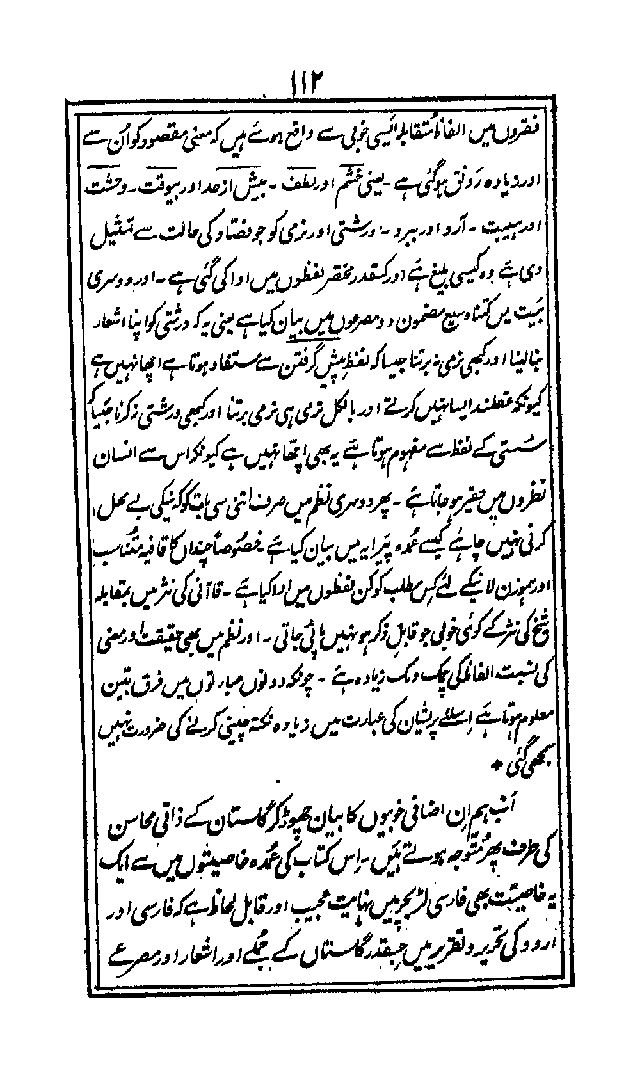 ۱۱۲
فقروں میں الفاظ متقابلہ ایسی خوبی سے واقع ہوئے ہیں کہ معنی مقصود کو اُن سے
اور زیادہ رونق ہوگئی ہے - یعنی خشم اور لطف - بیش از حد اور بیوقت - وحشت
اور ہیبت - آرد اور ببرد - درشتی اور نرمی کو جو فصاد کی حالت سے تمثیل
دی ہے وہ کیسی بلیغ ہے اور کسقدر مختصر لفظوں میں ادا کی گئی ہے - اور دوسری
بیت میں کتنا وسیع مضمون دو مصرعوں میں بیان کیا ہے یعنی یہ کہ درشتی کو اپنا اشعار
بنا لینا اور کبھی نرمی نہ برتنا جیسا کہ لفظ پیش گرفتن سے مستفاد ہوتا ہے اچھا نہیں ہے
کیونکہ عقلمند ایسا نہیں کرتے اور بالکل نرمی ہی نرمی برتنا اور کبھی درشتی نہ کرنا جیسا
سستی کے لفظ سے مفہوم ہوتا ہے یہ بھی اچھا نہیں ہے کیونکہ اس سے انسان
نظروں میں حقیر ہو جاتا ہے - پھر دوسری نظم میں صرف اتنی سی بات کو کہ نیکی بے محل
کرنی نہیں چاہئے کیسے عمدہ پیرایہ میں بیان کیا ہے خصوصاً چنداں کا قافیہ متناسب
اور ہموزن لانیکے لئے کس مطلب کو کن لفظوں میں ادا کیا ہے - قاآنی کی نثر میں بمقابلہ
شیخ کی نثر کے کوئی خوبی جو قابل ذکر ہو نہیں پائی جاتی - اور نظم میں بھی حقیقت اور معنی
کی نسبت الفاظ کی چمک دمک زیادہ ہے - چونکہ دونوں عبارتوں میں فرق بیّن
معلوم ہوتا ہے اسلئے پریشان کی عبارت میں زیادہ نکتہ چینی کرنے کی ضرورت نہیں
سمجھی گئی *
اب ہم اِن اضافی خوبیوں کا بیان چھوڑ کر گلستان کے ذاتی محاسن
کی طرف پھر متوجہ ہوتے ہیں - اِس کتاب کی عمدہ خاصیتوں میں سے ایک
یہ خاصیت بھی فارسی لٹریچر میں نہایت عجیب اور قابل لحاظ ہے کہ فارسی اور
اردو کی تحریر و تقریر میں جسقدر گلستاں کے جملے اور اشعار اور مصرعے